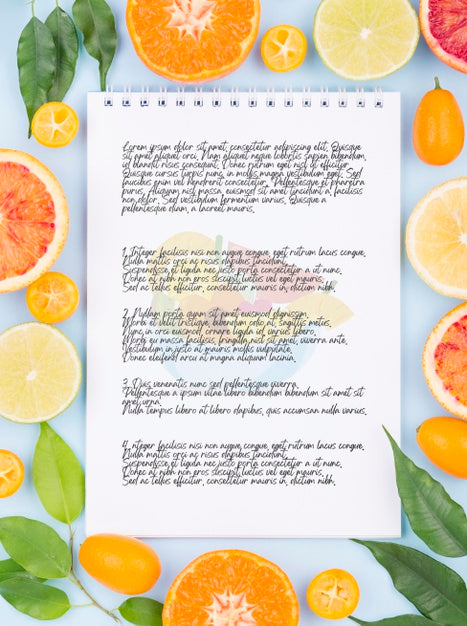 Lorem ipsum dolor sit amet, consectetur adipiscing elit. Quisque
sit amet aliquet orci. Nam aliquet neque lobortis sapien bibendum,
id blandit risus consequat. Donec rutrum est nisl et efficitur.
Quisque cursus turpis nunc, in mollis magna vestibulum eget. Sed
faucibus enim vel hendrerit consectetur. Pellentesque et pharetra
purus. Aliquam nisl massa, euismod sit amet tincidunt a, facilisis
non dolor. Sed vestibulum fermentum varius. Quisque a
pellentesque diam, a laoreet mauris.
1. Integer facilisis nisi non augue congue, eget rutrum lacus congue.
Nulla mattis orci ac risus dapibus tincidunt.
Suspendisse et ligula nec justo porta consectetur a ut nunc.
Donec at nibh non eros suscipit luctus vel eget mauris.
Sed ac tellus efficitur, consectetur mauris in, dictum nibh.
2. Nullam porta quam sit amet euismod dignissim.
Morbi et velit tristique, bibendum odio at, sagittis metus.
Nunc in orci euismod, ornare ligula id, varius libero.
Morbi eu massa facilisis, fringilla nisl sit amet, viverra ante.
Vestibulum in justo at mauris mollis vulputate.
Donec eleifend arcu at magna aliquam lacinia.
3. Duis venenatis nunc sed pellentesque viverra.
Pellentesque a ipsum vitae libero bibendum bibendum sit amet sit
amet urna.
Nulla tempus libero at libero dapibus, quis accumsan nulla varius.
4. nteger facilisis nisi non augue congue, eget rutrum lacus congue.
Nulla mattis orci ac risus dapibus tincidunt.
Suspendisse et ligula nec justo porta consectetur a ut nunc.
Donec at nibh non eros suscipit luctus vel eget mauris.
Sed ac tellus efficitur, consectetur mauris in, dictum nibh.